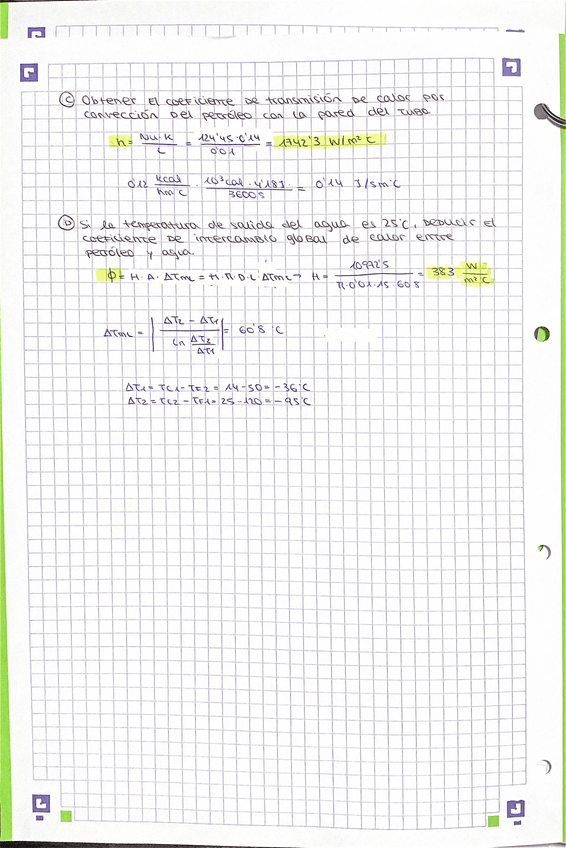 C Obtener el coeficiente de transmisión de calor por
convección del petróleo con la pared del tubo
h = Nu·K / L = 124'45·0'14 / 0'01 = 1742'3 W/m² C
0'12 kcal / h m°C · 10³cal · 4'18J / 3600s = 0'14 J/sm°C
D Si la temperatura de salida del agua es 25°C, deducir el
coeficiente de intercambio global de calor entre
petróleo y agua.
ϕ = H·A·ΔTmL = H·π·D·L·ΔTmL → H = 10972'5 / π·0'01·15·60'8 = 383 W / m²°C
ΔTmL = | ΔT2 - ΔT1 / Ln ΔT2 / ΔT1 | = 60'8 °C
ΔT1 = TC1 - TF2 = 14-50 = -36°C
ΔT2 = TC2 - TF1 = 25-120 = -95°C